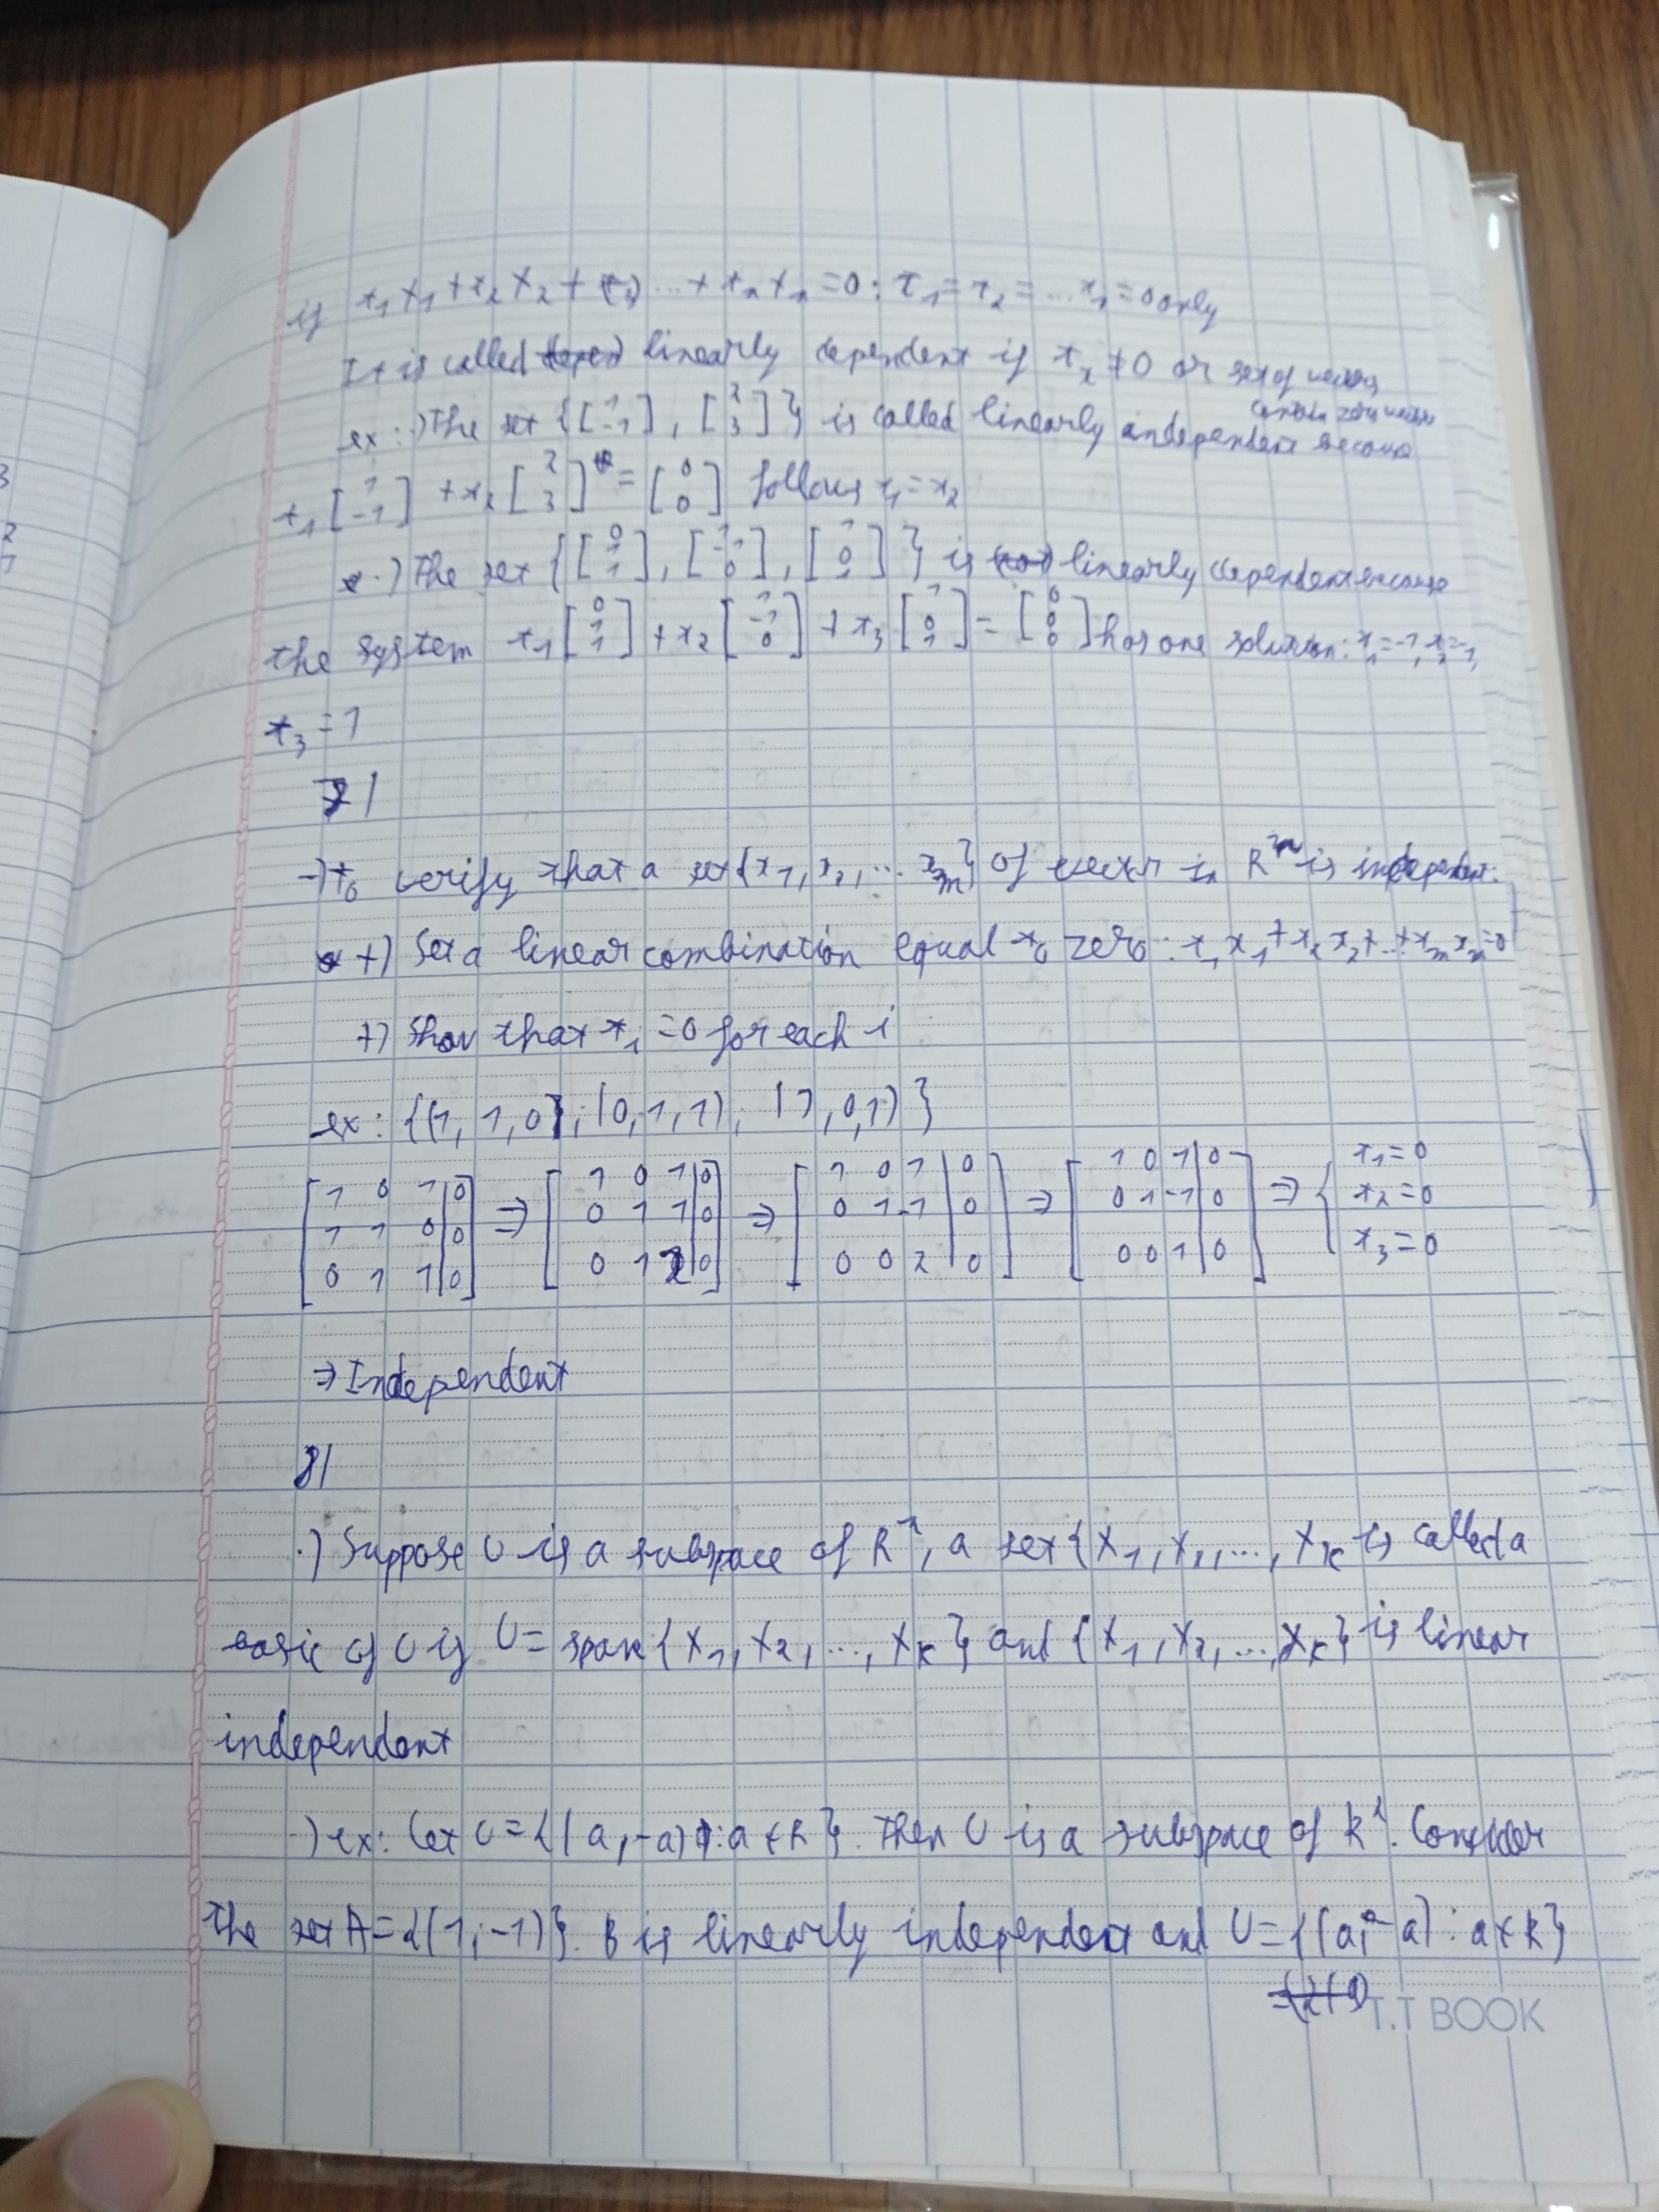 if x₁X₁+x₂X₂+ ...+xₙXₙ=0: x₁=x₂=...xₙ=0 only
It is called linearly dependent if xᵢ≠0 or set of vectors
contain zero vector
ex: ·) The set {[1 -1], [2 3]} is called linearly independent because
x₁[1 -1] +x₂[2 3] = [0 0] follows x₁=x₂
·) The set {[0 1 1], [1 -1 0], [1 0 1]} is linearly dependent because
the system x₁[0 1 1] +x₂[1 -1 0] +x₃[1 0 1] = [0 0 0] has one solution: x₁=-1, x₂=-1,
x₃=1
7/
-) to verify that a set {x₁,x₂,... xₘ} of vectr in Rⁿ is independent:
+) Set a linear combination equal to zero: x₁x₁+x₂x₂+...+xₘxₘ=0
+) Show that xᵢ=0 for each i
ex: {(1, 1,0); (0,1,1); (1,0,1)}
[1 0 1|0] ⇒ [1 0 1|0] ⇒ [1 0 1|0] ⇒ [1 0 1|0] ⇒ { x₁=0
[1 1 0|0] [0 1 1|0] [0 1 -1|0] [0 1 -1|0] x₂=0
[0 1 1|0] [0 1 2|0] [0 0 2|0] [0 0 1|0] x₃=0
⇒ Independent
8/
·) Suppose U is a subspace of Rⁿ, a set {X₁,X₂,..., Xₖ is called a
basic of U if U= span{X₁,X₂,...,Xₖ} and {X₁,X₂,...,Xₖ} is linear
independent
·) ex: Let U={(a,-a) : a∈R}. Then U is a subspace of R². Consider
the set A={(1,-1)}. B is linearly independent and U={(a,-a): a∈R}
T.T BOOK